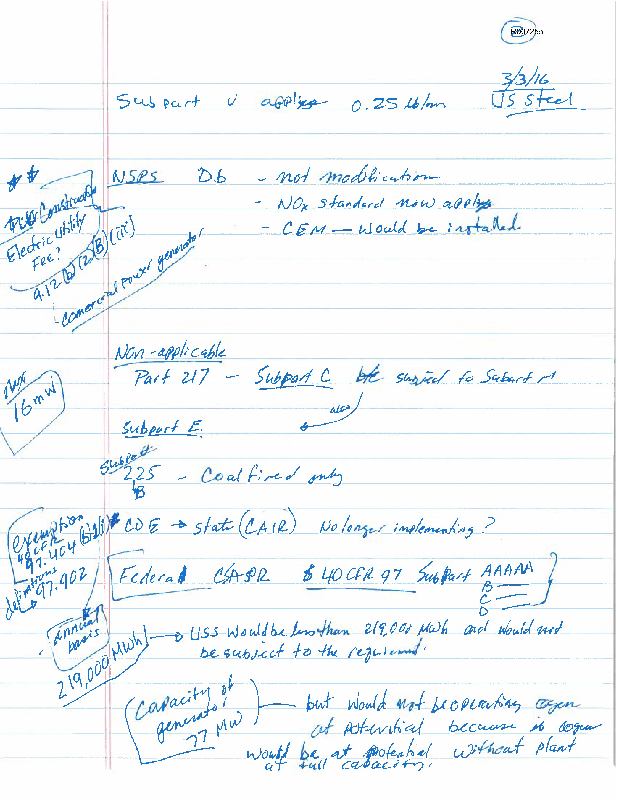 3/3/16
US Steel
Subpart U applys 0.25 lb/mm
NSPS Db - not modification
- NOx standard now applys
- CEM — Would be installed.
Construction
Electric Utility
FRE?
9.12 (b)(2)(B)(iii)
Comercial Power generator
Non-applicable
Part 217 - Subpart C b/c subject to Subart M
also
Subpart E.
16 MW
Subpart
225 - Coal fired only
B
exemption
40 CFR
97.404 (b)(1)
definitions
97.902
CDE → state (CAIR) No longer implementing?
Federal CSAPR $ 40 CFR 97 Subpart AAAAA
B
C
D
Annual
basis
219,000 MWh
→ USS would be less than 219,000 MWh and would not
be subject to the requirement.
Capacity of
generator
77 MW
— but would not be operating cogen
at potential because is cogen
would be at potential without plant
at full capacity.